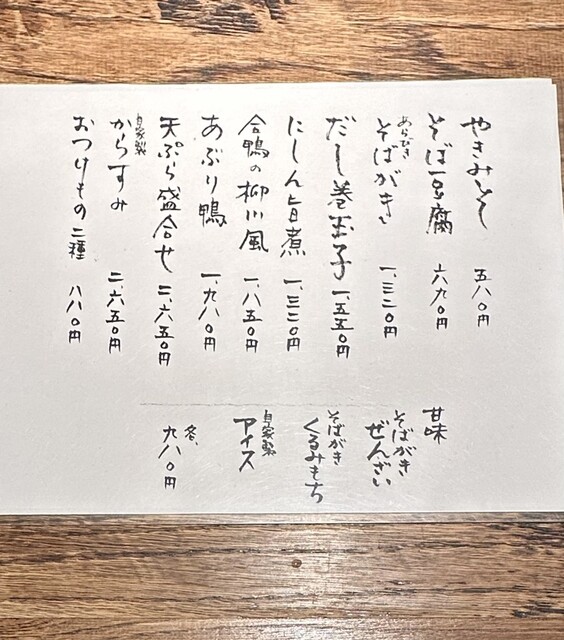 やきみそ 五八〇円
そば豆腐 六九〇円
あらびき
そばがき 一、三二〇円
だし巻玉子 一、五五〇円
にしん旨煮 一、三二〇円
合鴨の柳川風 一、八五〇円
あぶり鴨 一、九八〇円
天ぷら盛合せ 二、六五〇円
自家製
からすみ 二、六五〇円
おつけもの二種 八八〇円
甘味
そばがき
ぜんざい
そばがき
くるみもち
自家製
アイス
各、九八〇円